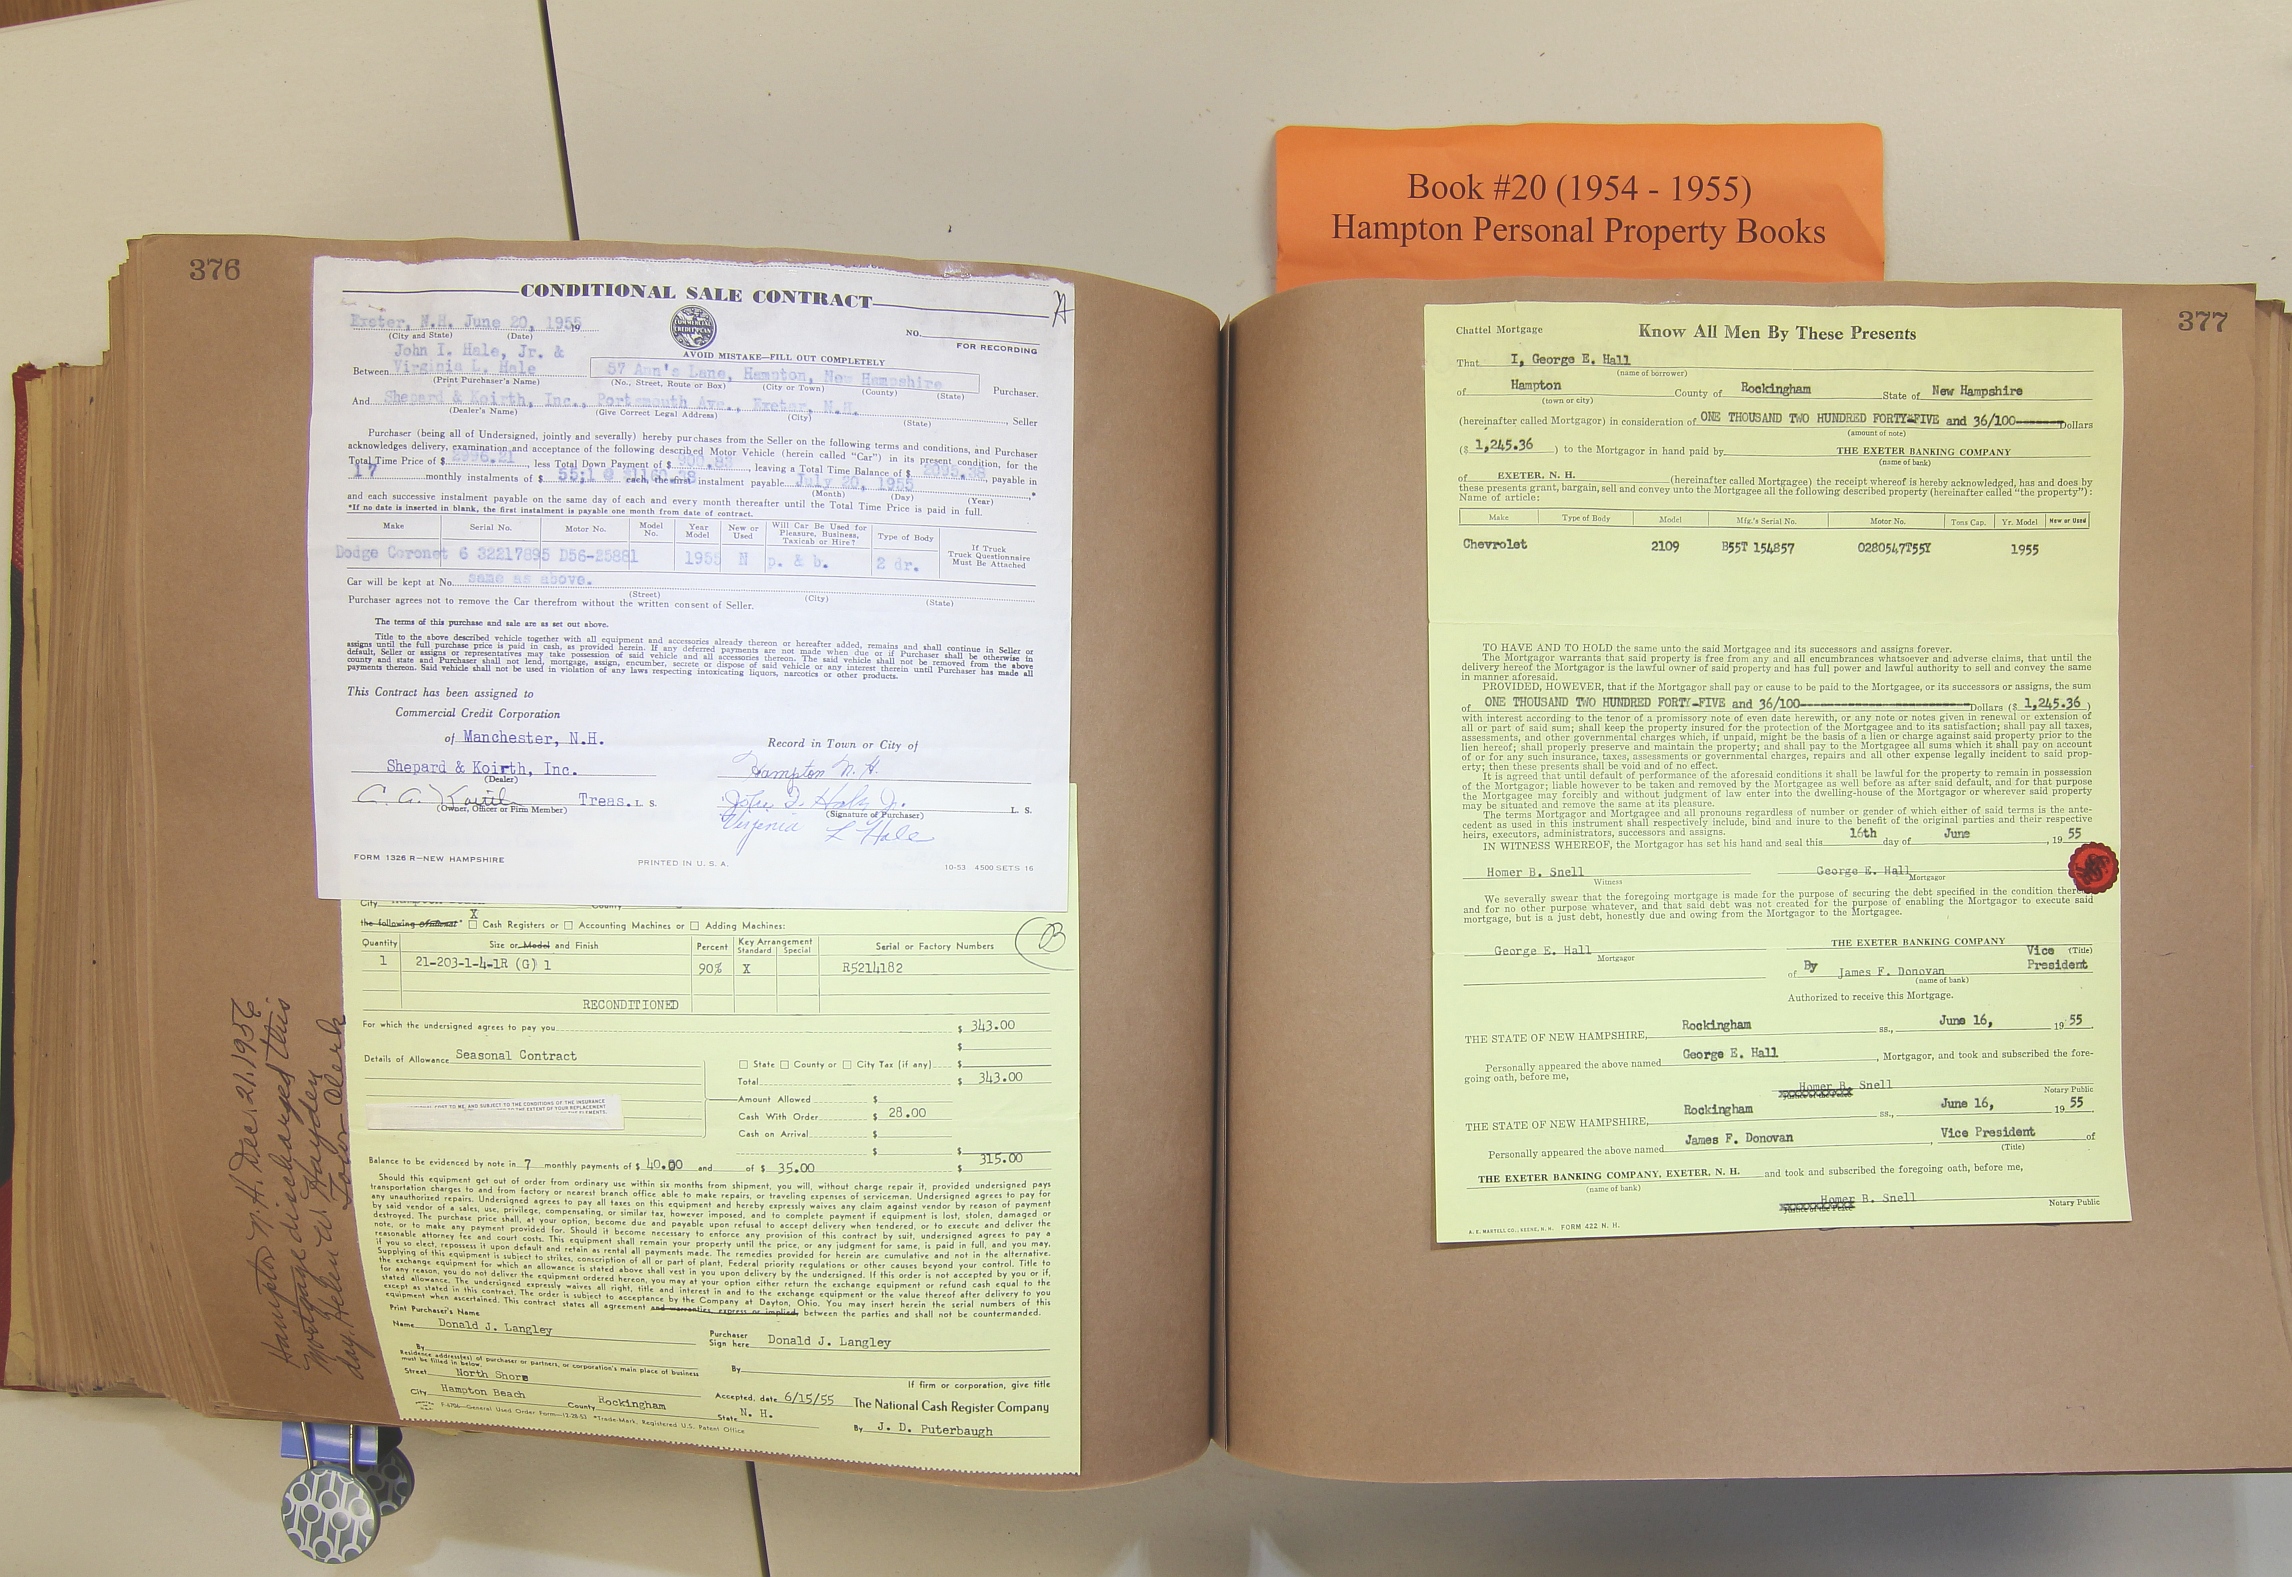 Book #20 (1954 - 1955)
Hampton Personal Property Books
376
CONDITIONAL SALE CONTRACT
A
Exeter, N.H. June 20, 1955
19
(City and State) (Date)
COMMERCIAL CREDIT PLAN
NO.
FOR RECORDING
AVOID MISTAKE—FILL OUT COMPLETELY
John I. Hale, Jr. &
Between Virginia L. Hale 57 Ann's Lane, Hampton, New Hampshire Purchaser.
(Print Purchaser's Name) (No., Street, Route or Box) (City or Town) (County) (State)
And Shepard & Koirth, Inc., Portsmouth Ave., Exeter, N.H. , Seller
(Dealer's Name) (Give Correct Legal Address) (City) (State)
Purchaser (being all of Undersigned, jointly and severally) hereby purchases from the Seller on the following terms and conditions, and Purchaser
acknowledges delivery, examination and acceptance of the following described Motor Vehicle (herein called "Car") in its present condition, for the
Total Time Price of $ 2996.21, less Total Down Payment of $ 900.83, leaving a Total Time Balance of $ 2095.38, payable in
17 monthly instalments of $ 55;1 @ $1160.38 each, the first instalment payable July 20, 1955 *
(Month) (Day) (Year)
and each successive instalment payable on the same day of each and every month thereafter until the Total Time Price is paid in full.
*If no date is inserted in blank, the first instalment is payable one month from date of contract.
Make Serial No. Motor No. Model No. Year Model New or Used Will Car Be Used for Pleasure, Business, Taxicab or Hire? Type of Body If Truck Truck Questionnaire Must Be Attached
Dodge Coronet 6 32217895 D56-25881 1955 N p. & b. 2 dr.
Car will be kept at No. same as above.
(Street) (City) (State)
Purchaser agrees not to remove the Car therefrom without the written consent of Seller.
The terms of this purchase and sale are as set out above.
Title to the above described vehicle together with all equipment and accessories already thereon or hereafter added, remains and shall continue in Seller or
assigns until the full purchase price is paid in cash, as provided herein. If any deferred payments are not made when due or if Purchaser shall be otherwise in
default, Seller or assigns or representatives may take possession of said vehicle and all accessories thereon. The said vehicle shall not be removed from the above
county and state and Purchaser shall not lend, mortgage, assign, encumber, secrete or dispose of said vehicle or any interest therein until Purchaser has made all
payments thereon. Said vehicle shall not be used in violation of any laws respecting intoxicating liquors, narcotics or other products.
This Contract has been assigned to
Commercial Credit Corporation
of Manchester, N.H.
Record in Town or City of
Shepard & Koirth, Inc. Hampton N. H.
(Dealer)
C. A. Koirth Treas. L. S. John I. Hale Jr. L. S.
(Owner, Officer or Firm Member) (Signature of Purchaser)
Virginia L Hale
FORM 1326 R—NEW HAMPSHIRE PRINTED IN U. S. A. 10-53 4500 SETS 16
City County
the following X Cash Registers or Accounting Machines or Adding Machines:
B
Quantity Size or Model and Finish Percent Key Arrangement Standard Special Serial or Factory Numbers
1 21-203-1-4-1R (G) 1 90% X R5214182
RECONDITIONED
For which the undersigned agrees to pay you $ 343.00
$
Details of Allowance Seasonal Contract State County or City Tax (if any) $
Total $ 343.00
Amount Allowed $
Cash With Order $ 28.00
Cash on Arrival $
$ $
Balance to be evidenced by note in 7 monthly payments of $ 40.00 and of $ 35.00 $ 315.00
Should this equipment get out of order from ordinary use within six months from shipment, you will, without charge repair it, provided undersigned pays
transportation charges to and from factory or nearest branch office able to make repairs, or traveling expenses of serviceman. Undersigned agrees to pay for
any unauthorized repairs. Undersigned agrees to pay all taxes on this equipment and hereby expressly waives any claim against vendor by reason of payment
by said vendor of a sales, use, privilege, compensating, or similar tax, however imposed, and to complete payment if equipment is lost, stolen, damaged or
destroyed. The purchase price shall, at your option, become due and payable upon refusal to accept delivery when tendered, or to execute and deliver the
note, or to make any payment provided for. Should it become necessary to enforce any provision of this contract by suit, undersigned agrees to pay a
reasonable attorney fee and court costs. This equipment shall remain your property until the price, or any judgment for same, is paid in full, and you may,
if you so elect, repossess it upon default and retain as rental all payments made. The remedies provided for herein are cumulative and not in the alternative.
Supplying of this equipment is subject to strikes, conscription of all or part of plant, Federal priority regulations or other causes beyond your control. Title to
the exchange equipment for which an allowance is stated above shall vest in you upon delivery by the undersigned. If this order is not accepted by you or if,
for any reason, you do not deliver the equipment ordered hereon, you may at your option either return the exchange equipment or refund cash equal to the
stated allowance. The undersigned expressly waives all right, title and interest in and to the exchange equipment or the value thereof after delivery to you
except as stated in this contract. The order is subject to acceptance by the Company at Dayton, Ohio. You may insert herein the serial numbers of this
equipment when ascertained. This contract states all agreement and warranties, express or implied, between the parties and shall not be countermanded.
Print Purchaser's Name
Name Donald J. Langley Purchaser Sign here Donald J. Langley
By By
Residence address(es) of purchaser or partners, or corporation's main place of business
must be filled in below. If firm or corporation, give title
Street North Shore
City Hampton Beach County Rockingham State N. H. Accepted, date 6/15/55 The National Cash Register Company
F-4704—General Used Order Form—12-28-53 *Trade-Mark, Registered U.S. Patent Office By J. D. Puterbaugh
Hampton N. H. Dec. 21, 1956
Mortgage discharged this
day. Helen W. Hayden
Town Clerk
377
Chattel Mortgage Know All Men By These Presents
That I, George E. Hall
(name of borrower)
of Hampton County of Rockingham State of New Hampshire
(town or city)
(hereinafter called Mortgagor) in consideration of ONE THOUSAND TWO HUNDRED FORTY-FIVE and 36/100-------Dollars
(amount of note)
($ 1,245.36 ) to the Mortgagor in hand paid by THE EXETER BANKING COMPANY
(name of bank)
of EXETER, N. H. (hereinafter called Mortgagee) the receipt whereof is hereby acknowledged, has and does by
these presents grant, bargain, sell and convey unto the Mortgagee all the following described property (hereinafter called "the property"):
Name of article:
Make Type of Body Model Mfg.'s Serial No. Motor No. Tons Cap. Yr. Model New or Used
Chevrolet 2109 B55T 154857 0280547T55Y 1955
TO HAVE AND TO HOLD the same unto the said Mortgagee and its successors and assigns forever.
The Mortgagor warrants that said property is free from any and all encumbrances whatsoever and adverse claims, that until the
delivery hereof the Mortgagor is the lawful owner of said property and has full power and lawful authority to sell and convey the same
in manner aforesaid.
PROVIDED, HOWEVER, that if the Mortgagor shall pay or cause to be paid to the Mortgagee, or its successors or assigns, the sum
of ONE THOUSAND TWO HUNDRED FORTY-FIVE and 36/100-------Dollars ($ 1,245.36 )
with interest according to the tenor of a promissory note of even date herewith, or any note or notes given in renewal or extension of
all or part of said sum; shall keep the property insured for the protection of the Mortgagee and to its satisfaction; shall pay all taxes,
assessments, and other governmental charges which, if unpaid, might be the basis of a lien or charge against said property prior to the
lien hereof; shall properly preserve and maintain the property; and shall pay to the Mortgagee all sums which it shall pay on account
of or for any such insurance, taxes, assessments or governmental charges, repairs and all other expense legally incident to said prop-
erty; then these presents shall be void and of no effect.
It is agreed that until default of performance of the aforesaid conditions it shall be lawful for the property to remain in possession
of the Mortgagor; liable however to be taken and removed by the Mortgagee as well before as after said default, and for that purpose
the Mortgagee may forcibly and without judgment of law enter into the dwelling-house of the Mortgagor or wherever said property
may be situated and remove the same at its pleasure.
The terms Mortgagor and Mortgagee and all pronouns regardless of number or gender of which either of said terms is the ante-
cedent as used in this instrument shall respectively include, bind and inure to the benefit of the original parties and their respective
heirs, executors, administrators, successors and assigns.
IN WITNESS WHEREOF, the Mortgagor has set his hand and seal this 16th day of June , 19 55
Homer B. Snell George E. Hall
Witness Mortgagor
We severally swear that the foregoing mortgage is made for the purpose of securing the debt specified in the condition thereof
and for no other purpose whatever, and that said debt was not created for the purpose of enabling the Mortgagor to execute said
mortgage, but is a just debt, honestly due and owing from the Mortgagor to the Mortgagee.
George E. Hall THE EXETER BANKING COMPANY
Mortgagor Vice (Title)
of By James F. Donovan President
(name of bank)
Authorized to receive this Mortgage.
THE STATE OF NEW HAMPSHIRE, Rockingham ss., June 16, 19 55
Personally appeared the above named George E. Hall , Mortgagor, and took and subscribed the fore-
going oath, before me,
Homer B. Snell
Notary Public
THE STATE OF NEW HAMPSHIRE, Rockingham ss., June 16, 19 55
Personally appeared the above named James F. Donovan , Vice President of
(Title)
THE EXETER BANKING COMPANY, EXETER, N. H. and took and subscribed the foregoing oath, before me,
(name of bank)
Homer B. Snell
Notary Public
A. E. MARTELL CO., KEENE, N. H. FORM 422 N. H.